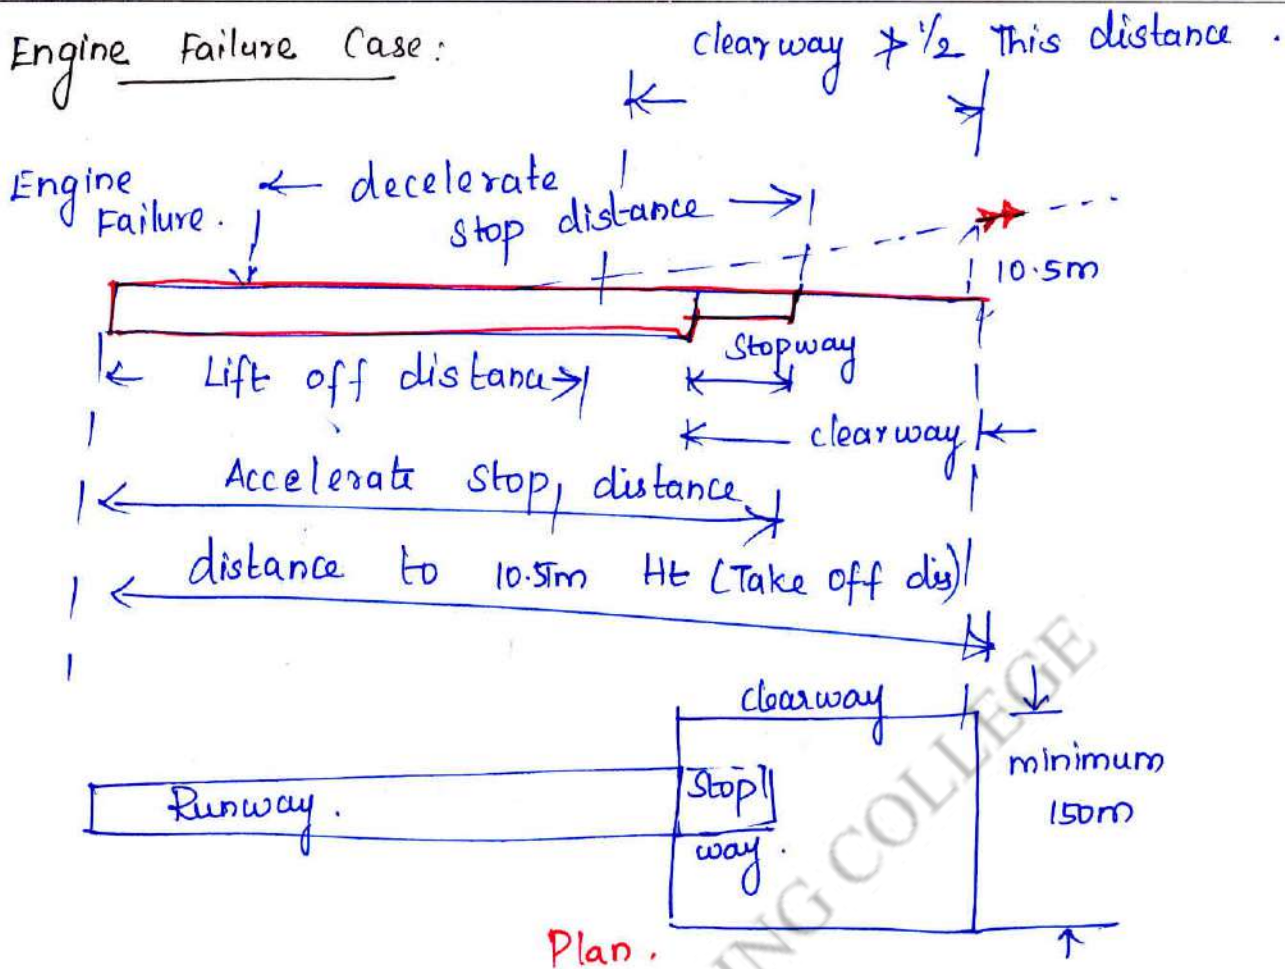 Engine Failure Case:
clearway ≯ 1/2 This distance.
Engine
Failure.
decelerate
stop distance
10.5m
Lift off distance
Stopway
clearway
Accelerate stop distance
distance to 10.5m Ht (Take off dis)
clearway
minimum
150m
Runway.
Stop
way.
Plan.
ING COLLEGE